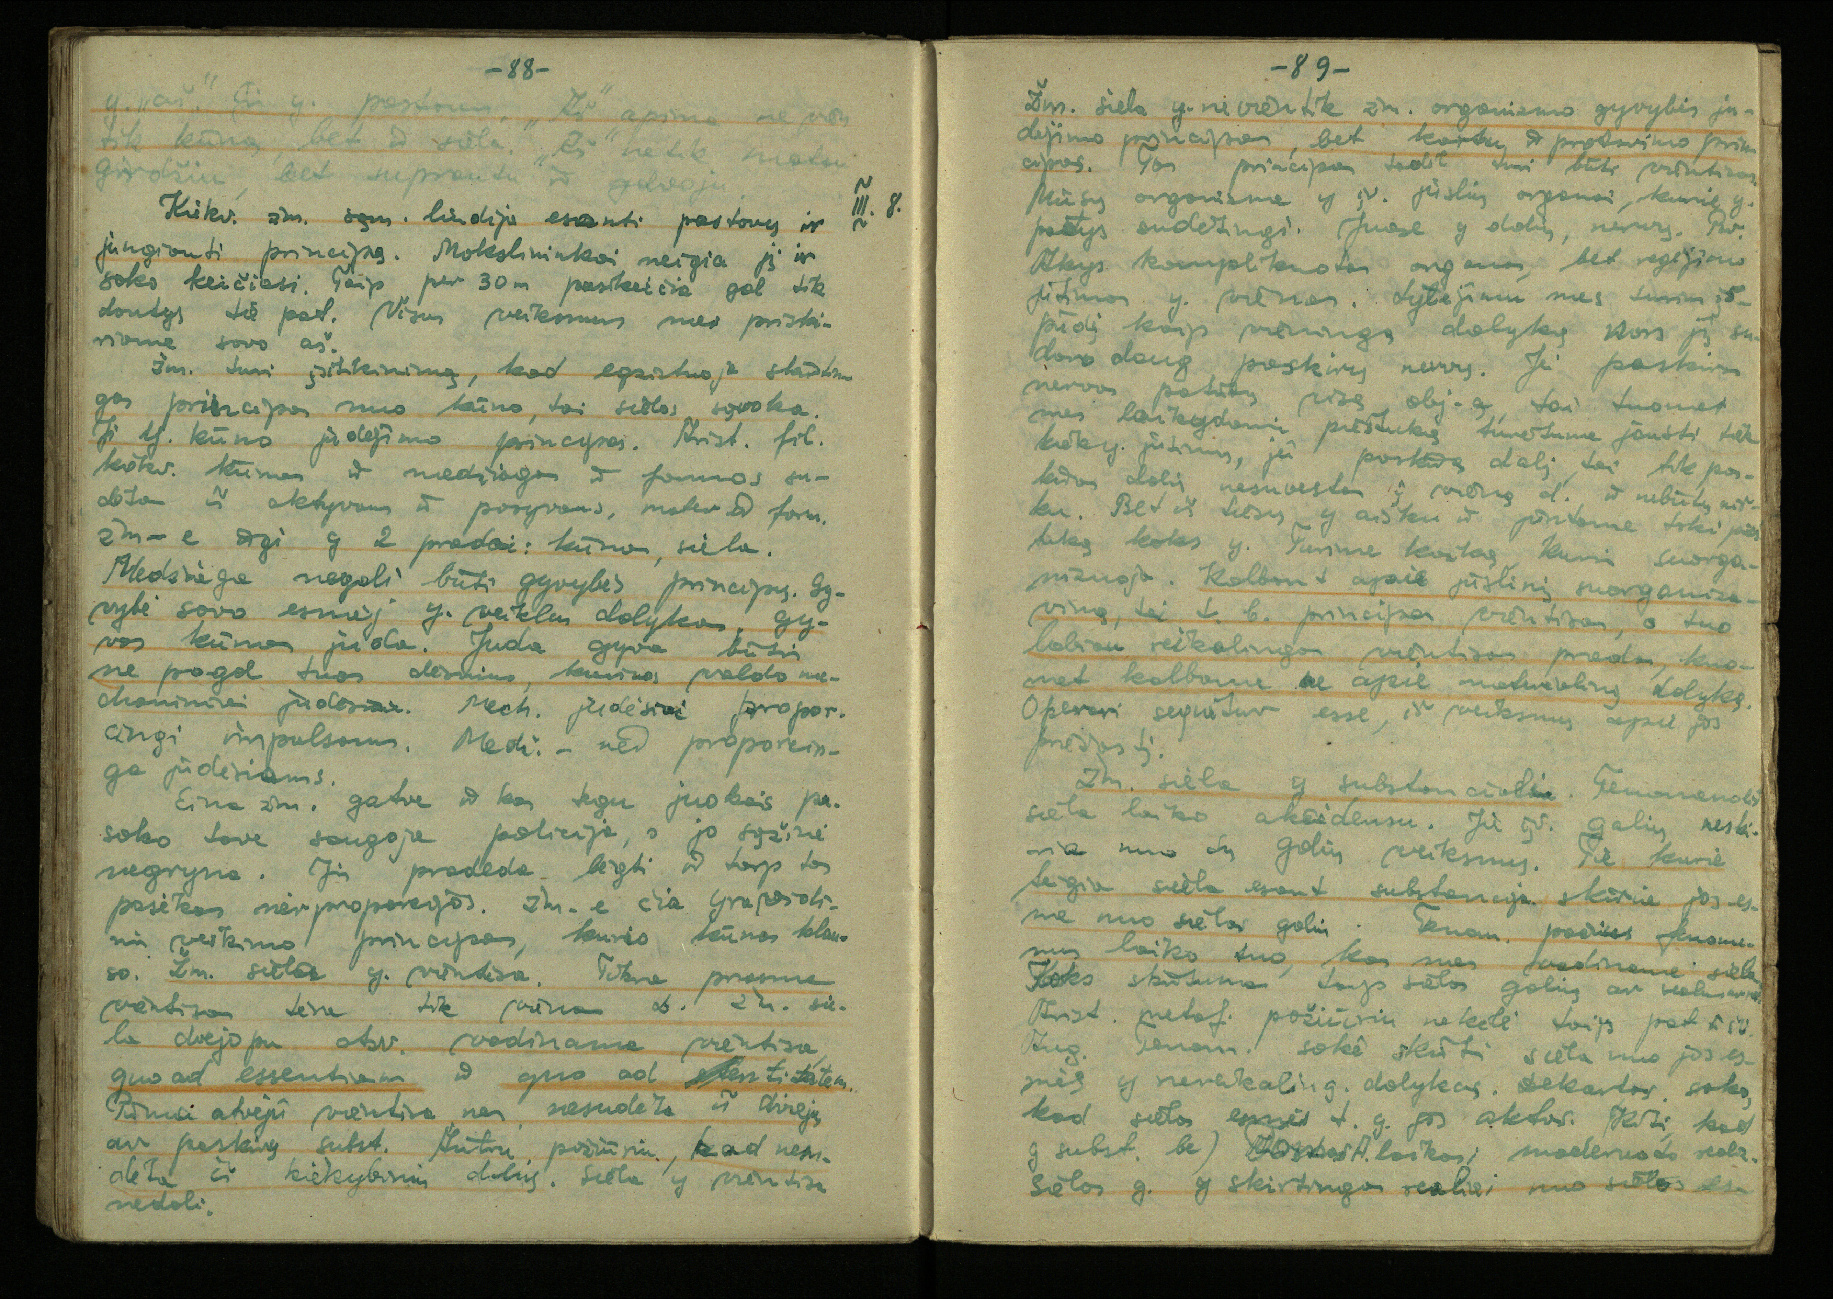 -88-
y. „aš." Jis y. pastovus. „Aš" apima ne vien
tik kūną, bet ir sielą. „Aš" netik matau
girdžiu, bet suprantu ir galvoju.
III. 8.
Kiekv. žm. sąm. liudija esanti pastovų ir
jungianti principą. Mokslininkai neigia jį ir
sako keičiasi. Taip per 30 m pasikeičia gal tik
dantys tie pat. Visus veiksmus mes priski-
riame savo aš.
Žm. turi įsitikinimą, kad egzistuoja skirtin
gas principas nuo kūno, tai sielos sąvoka.
Ji y. kūno judėjimo principas. Krist. fil.
kiekv. kūnas iš medžiagos ir formos su-
dėta iš aktyvaus ir pasyvaus, mater ir form.
žm-e irgi y 2 pradai: kūnas, siela.
Medžiaga negali būti gyvybės principas. Gy-
vybė savo esmėj y. veiklus dalykas, gy-
vas kūnas juda. Juda gyva būtis
ne pagal tuos dėsnius, kuriuos valdo me-
chaniniai judesiai. Mech. judesiai propor-
cingi impulsams. Medž. - nėr proporcin-
ga judesiams.
Eina žm. gatve ir kas tegu juokais pa-
sako tave saugoja policija, o jo sąžinė
negryna. Jis pradeda bėgti ir tarp tos
pasėkos nėr proporcijos. Žm-e čia yra
veikimo principas, kurio kūnas klau-
so. Žm. siela y. vientisa. Tikra prasme
vientisas tėra tik vienas d. Žm. sie-
la dvejopu atžv. vadiname vientisa,
quo ad essentiam ir quo ad
Pirmu atveju vientisa nes nesudėta iš dviejų
ar paskirų subst. Antru požiūriu, kad nesu-
dėta iš kiekybinių dalių. Siela y vientisa
nedali.
-89-
Žm. siela y. ne vien tik žm. organizmo gyvybės ju-
dėjimo principas, bet kartu ir protavimo prin
cipas. Tas principas todėl turi būti vientisas.
Mūsų organizme y įv. jūslių organai, kurie y.
patys sudėtingi. Juose y dalių, nervų. Pav.
Akys komplikuotas organas, bet regėjimo
jutimas y. vienas. Lytėjimu mes turim įs-
pūdį kaip vieningą dalyką nors jį su-
daro daug paskirų nervų. Jei paskiras
nervas patirtų visą obj-ą, tai tuomet
mes laikydami pieštuką turėtume jausti tiek
kiek y. jutimų, jei paskirą dalį, tai tik pas-
kiros dalys nesuvestos į vieną d. ir nebūtų aiš-
ku. Bet iš tiesų y aišku ir jaučiame tokį pieš
tuką koks y. Turime kažką, kuris suorga-
nizuoja. Kalbant apie jūslinį suorganiza-
vimą, tai t. b. principas vientisas, o tuo
labiau reikalingas vientisas pradas, kuo-
met kalbame ne apie materialinį dalyką.
Operari sequitur esse, iš veiksmų apie jos
priežastį.
Žm. siela y substancialė. Fenomenalis
siela laiko akcidensu. Jie įv. galių neski-
ria nuo tų galių veiksmų. Tie kurie
teigia siela esant substancija skiria jos es-
mę nuo sielos galių. Fenom. pačius fenome-
nus laiko tuo, ką mes vadiname siela
Toks skirtumas tarp sielos galių ar
Krist. metaf. požiūriu nekėlė taip pat ir
Aug. Fenom. sakė skirti siela nuo jos es-
mės y nereikaling. dalykas. Dekartas sako,
kad sielos esmės t. y. jos aktas. Kiti, kad
y subst. be) laikosi modernioj
Sielos g. y skirtingos realiai nuo sielos es-